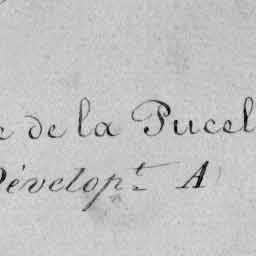 e de la Pucel
Dévelop.t A